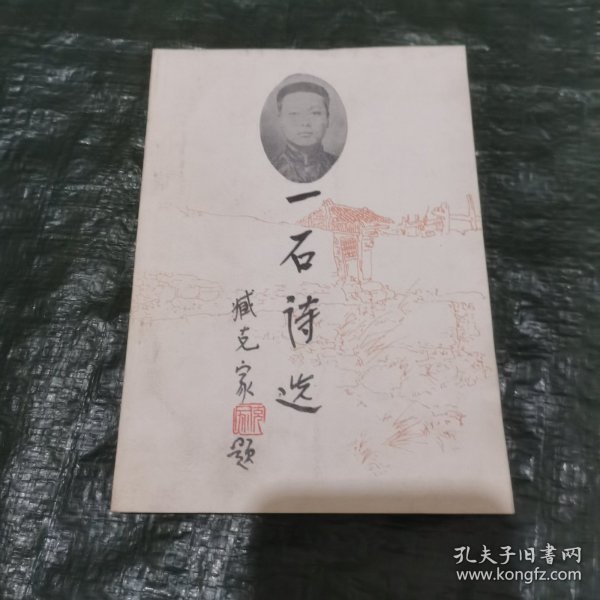 一石诗选
臧克家
题
孔夫子旧书网
www.kongfz.com